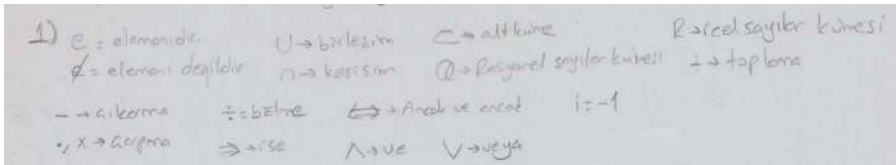 1) e = elemanıdır. U → birleşim ⊂ → altküme R → reel sayılar kümesi
∉ = elemanı değildir ∩ → kesişim Q → Rasyonel sayılar kümesi + → toplama
- → çıkarma ÷ = bölme ⇔ → Ancak ve ancak i = -1
., x → çarpma ⇒ → ise ∧ → ve ∨ → veya